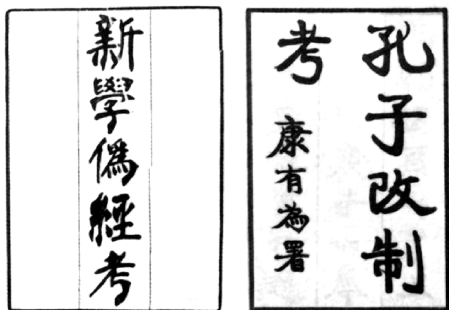 新學僞經考
孔子改制
考
康有為署